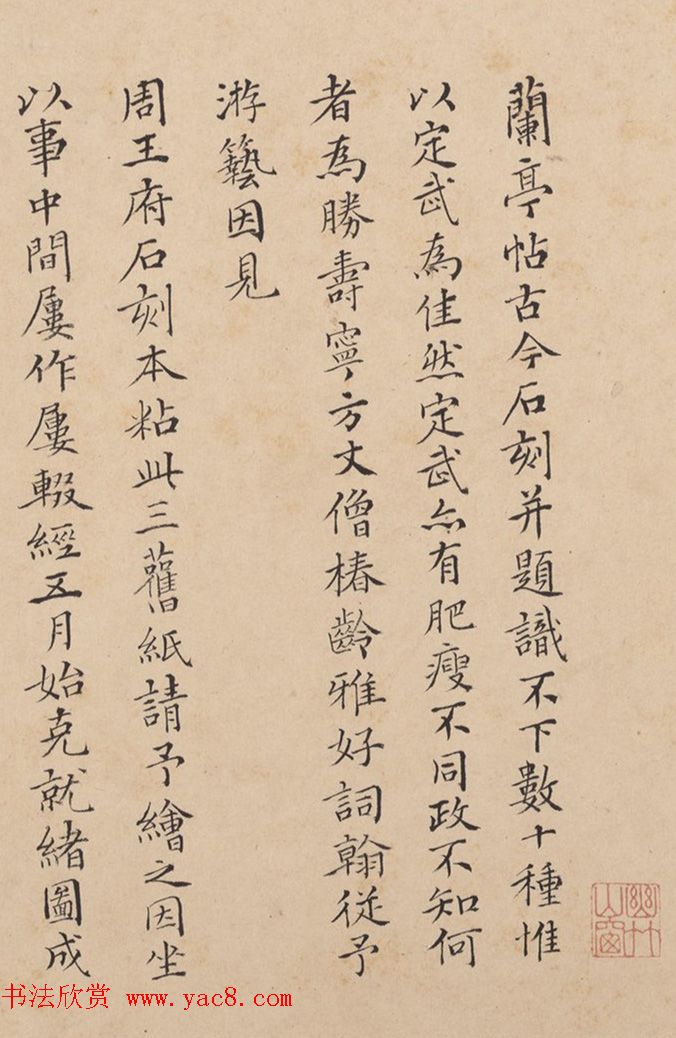 蘭亭帖古今石刻并題識不下數十種惟
以定武為佳然定武亦有肥瘦不同政不知何
者為勝壽寧方丈僧椿齡雅好詞翰從予
游藝因見
周王府石刻本粘此三舊紙請予繪之因坐
以事中間屢作屢輟經五月始克就緒圖成
书法欣赏 www.yac8.com